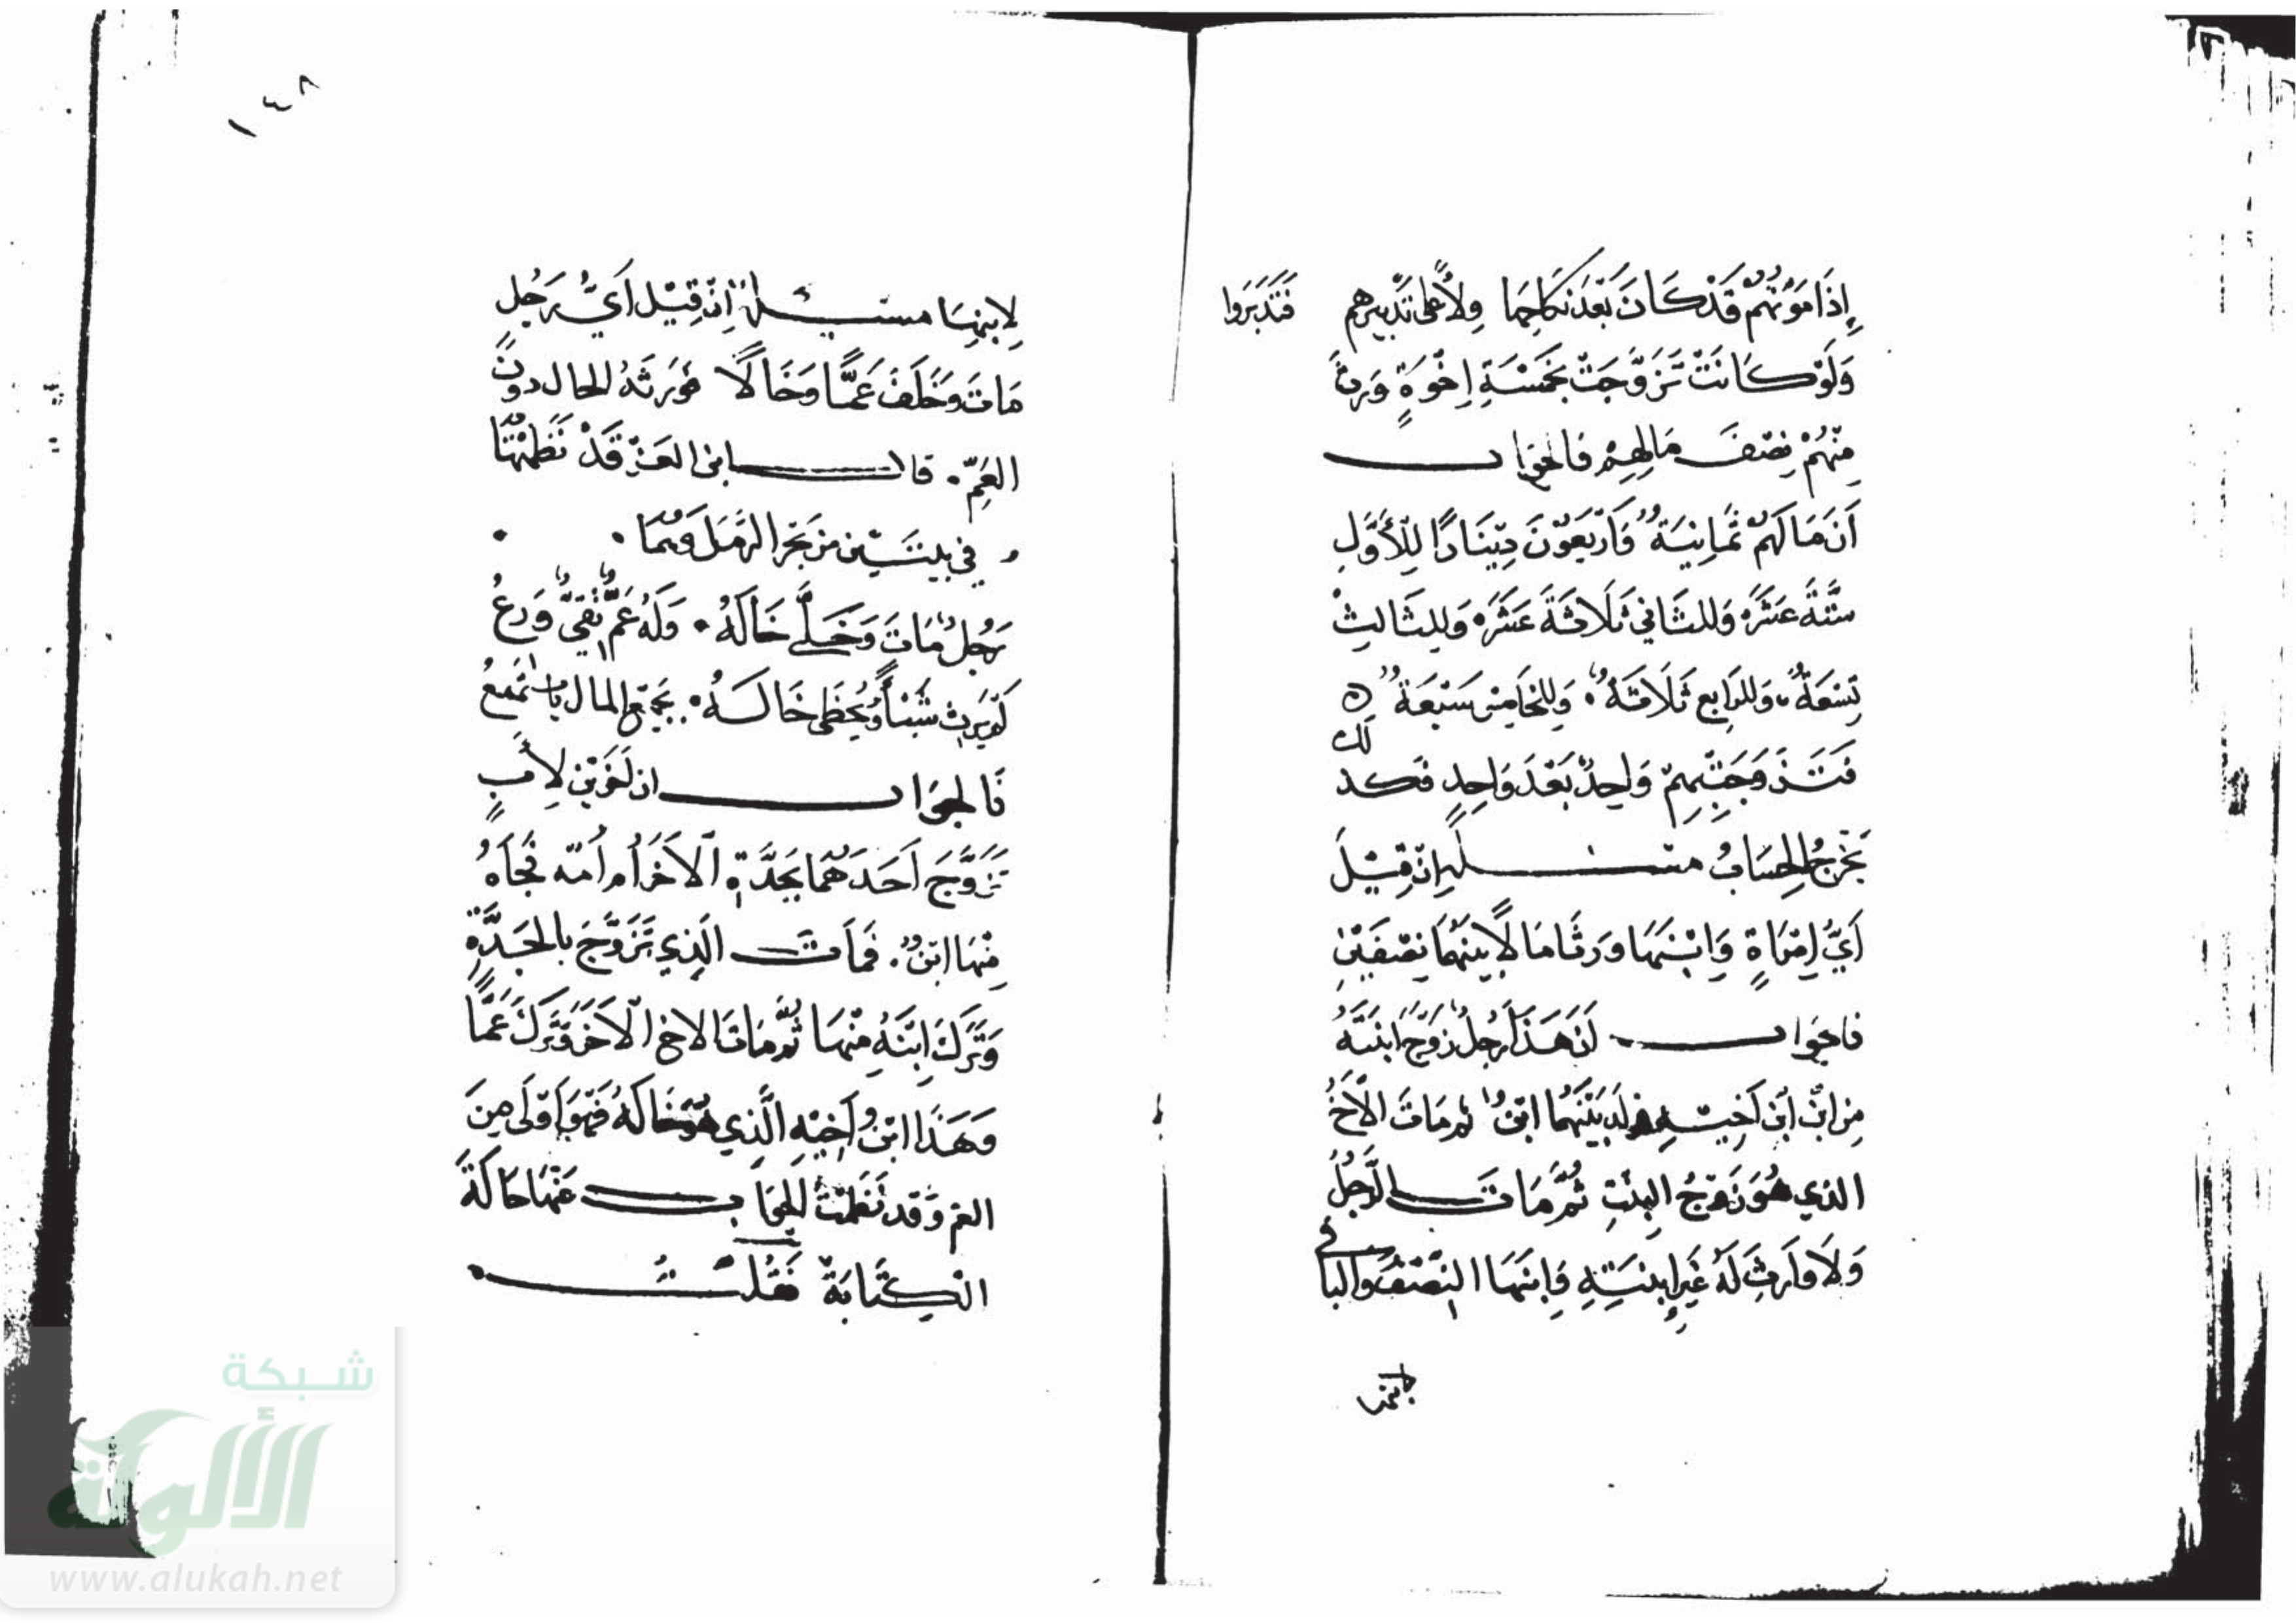 إِذَا مَوْتُهُمْ قَدْ كَانَ بَعْدَ نكَاحِهَا وِلَاءً عَلَى تَدْبِيرِهِم فَتَدَبَّرُوا
وَلَوْ كَانَتْ تَزَوَّجَتْ بِخَمْسَةِ إِخْوَةٍ وَرِثَتْ
مِنْهُمْ نِصْفَ مَالِهِمْ فَالْجَوَابُ
أَنَّ مَالَهُمْ ثَمَانِيَةٌ وَأَرْبَعُونَ دِينَارًا لِلْأَوَّلِ
سِتَّةَ عَشَرَ وَللثَّانِي ثَلَاثَةَ عَشَرَ وَلِلثَّالِثْ
تِسْعَةٌ وَللرَّابِع ثَلَاثَةٌ وَلِلْخَامِسِ سَبْعَةٌ ه
فَتَزَوَّجَتْ بِهِمْ وَاحِدٌ بَعْدَ وَاحِدٍ فَكَذَلك
يَخْرُجُ الْحِسَابُ مَسْئَلَة إِنْ قِيْلَ
أَيُّ إِمْرَأَةٍ وَابْنَهَا وَرثَا مَالًا بَيْنَهُمَا نِصْفَيْنِ
فَالْجَوَاب أَنَّ هَذَا رَجُلٌ زَوَّجَ ابْنَتَهُ
مِن ابْنِ ابْنِ أَخِيْهِ فولد بَيْنَهُمَا ابْنٌ ثم مَاتَ الْأَخُ
الذي هُوَ زَوْجُ الْبِنْتِ ثُمَّ مَاتَ الرَّجُلُ
وَلَا وَارِثَ لَهُ غَيْرَ ابْنَتِهِ وَابْنِهَا النِّصْفُ وَالْبَاقِي
لابنها
١٤٨
لِابْنِهَا مسئلة إِنْ قِيْلَ أَيُّ رَجُلٍ
مَاتَ وَخَلَفَ عَمًّا وَخَالًا فَوَرَثَهُ الخال دُونَ
العَمِّ قال ابن العِزِّ قَدْ نَظَمْتُهَا
في بيتَيْن من بَحْرِ الرَّمَلِ وَهُمَا
رَجُلٌ مَاتَ وَخَلَّى خَالَهُ وَلَهُ عَمٌّ تَقِيٌّ وَرِعُ
لَمْ يَرِثْ شَيْئًا وَيُحْظَى خَالُهُ بِجَمِيعِ المال
فَالجَوَاب ان أَخَوَيْنِ لِأَبٍ
تَزَوَّجَ أَحَدُهُمَا بِجَدَّةِ الْآخَرِ أُم أُمِّه فَجَاءَهُ
مِنْهَا ابْنٌ فَمَاتَ الَّذِي تَزَوَّجَ بِالْجَدَّةِ
وَتَرَكَ ابْنَهُ مِنْهَا ثُمَّ مَاتَ الاخ الْآخَرُ وَتَرَكَ عَمًّا
وَهَذَا ابْنُ أَخِيْهِ الَّذِي هُوَ خَالَهُ فَهُوَ أَوْلَى مِنَ
العم وَقَد نَظَمْتُ الْجَوَابَ عَنْهَا حَالَةَ
الْكِتَابَةِ فَقُلْتُ
شبكة
الألوكة
www.alukah.net